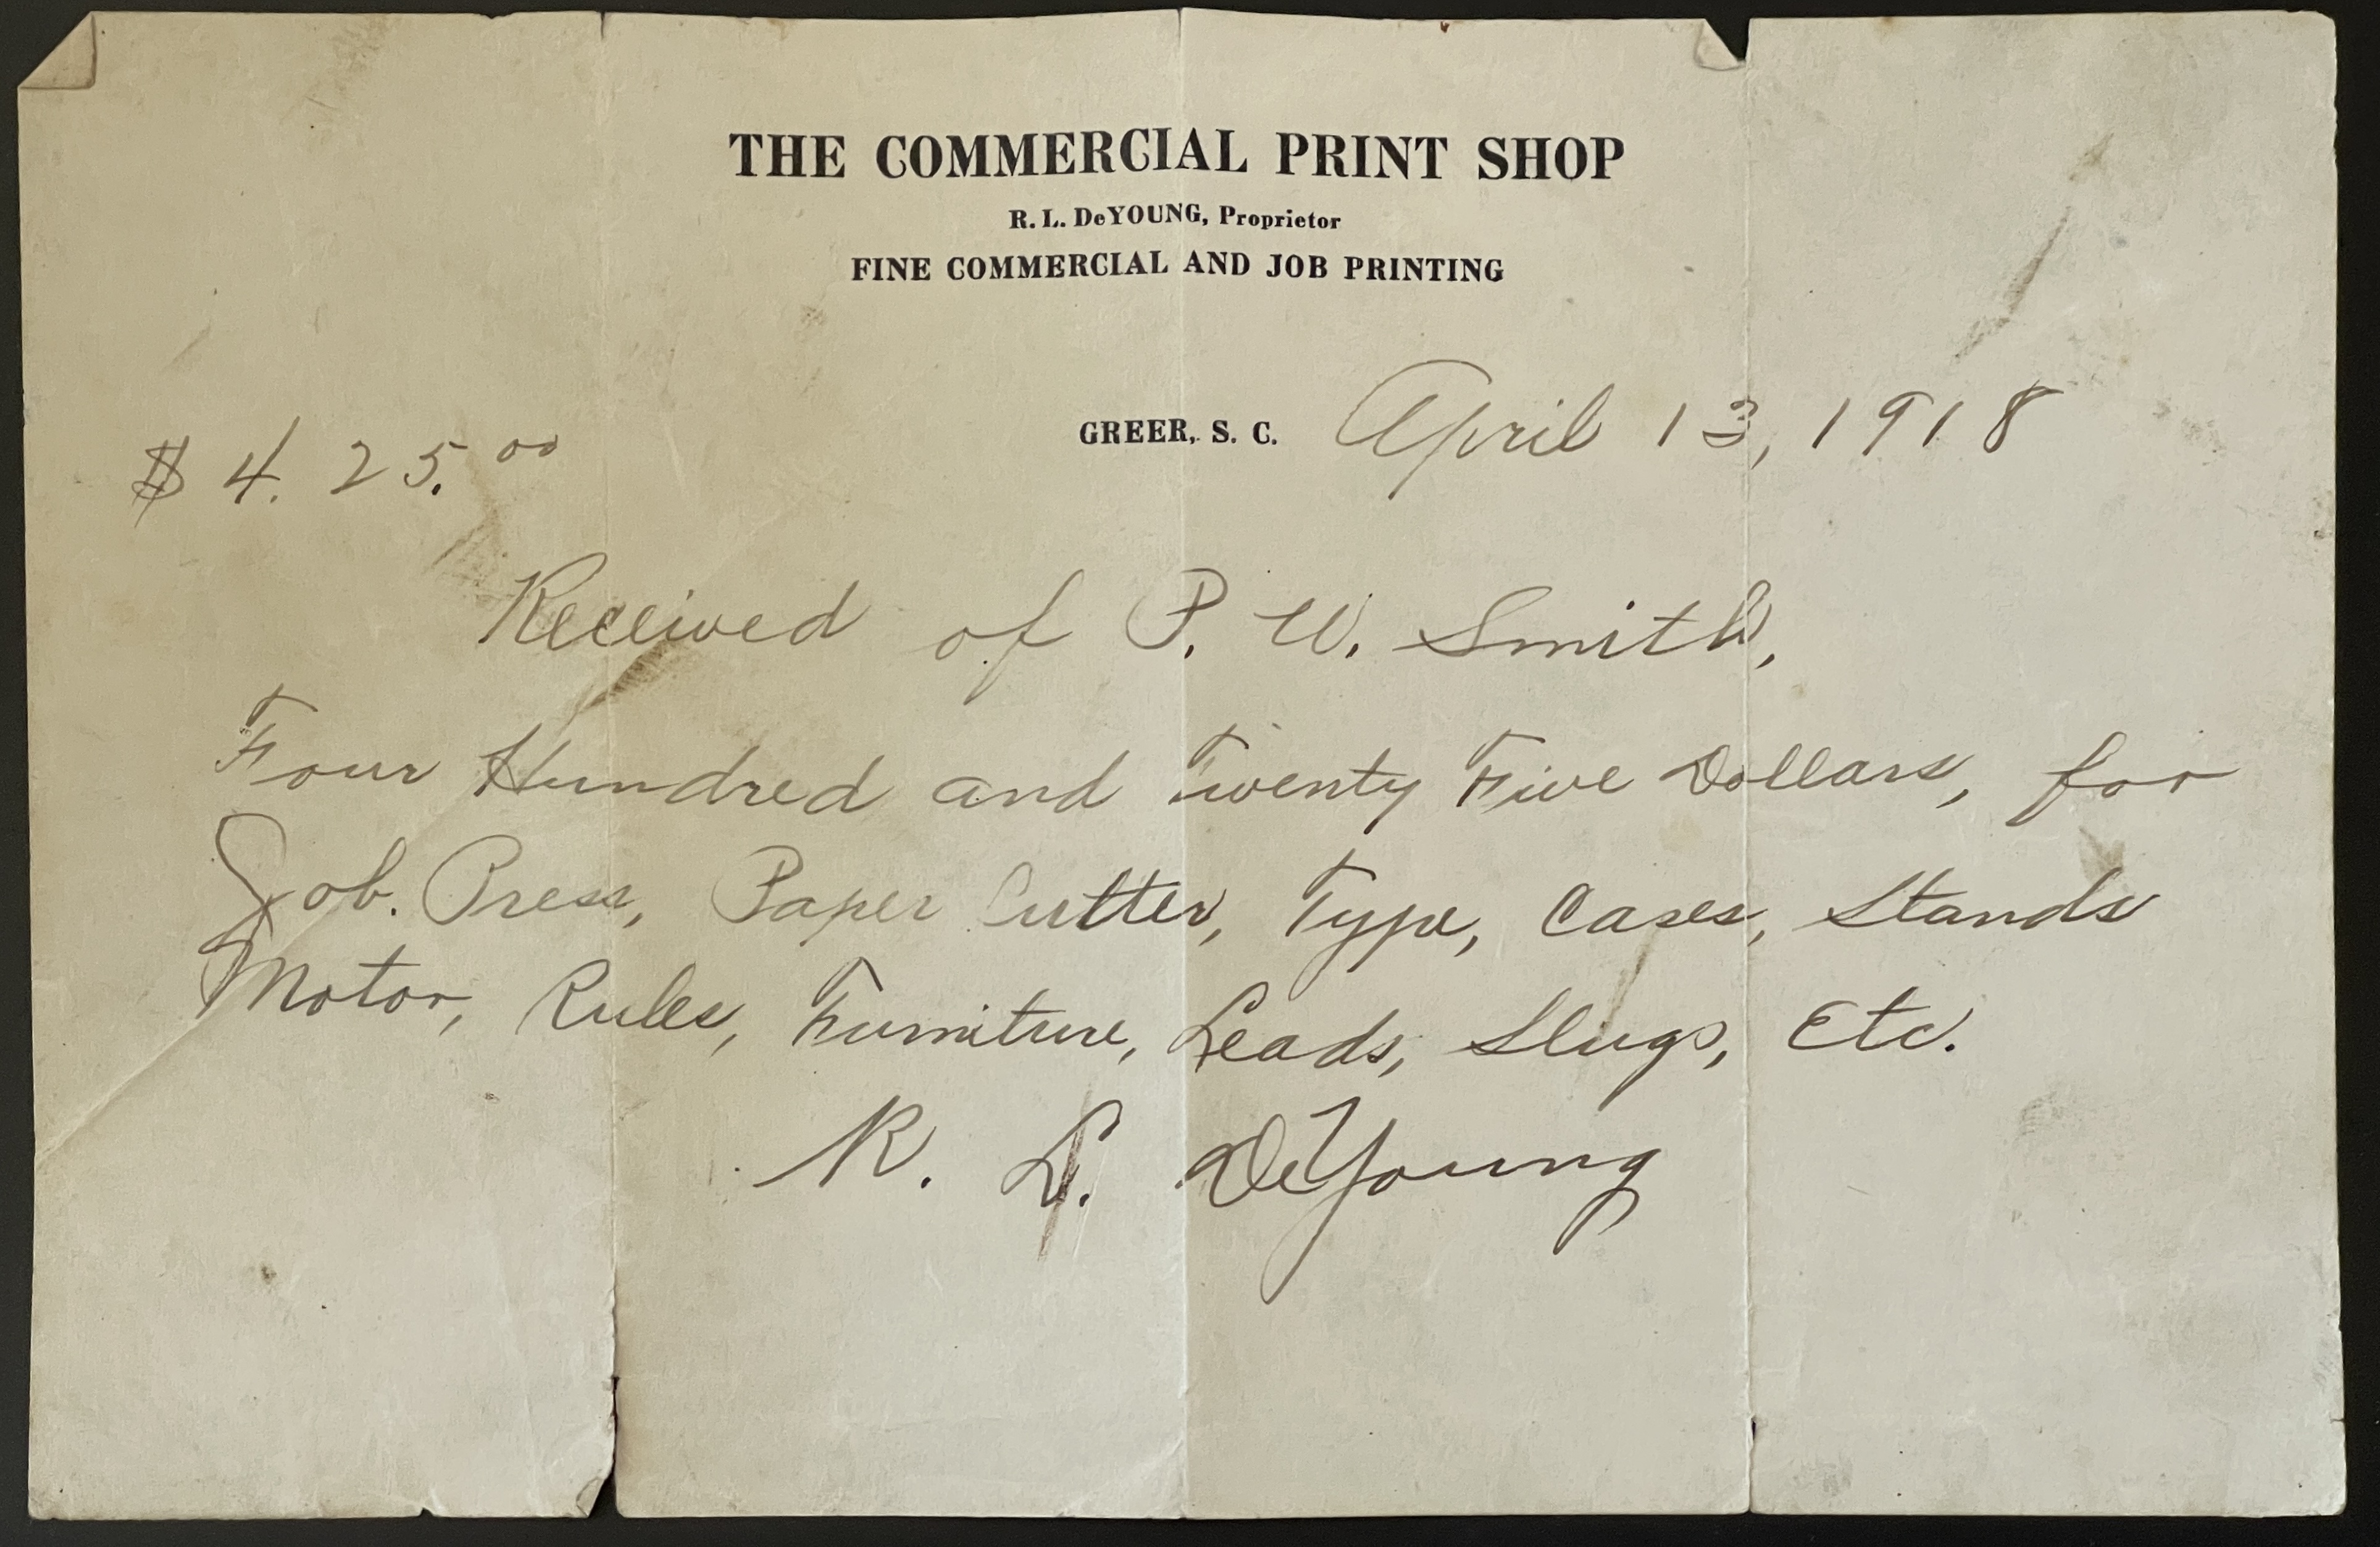 THE COMMERCIAL PRINT SHOP
R. L. DeYOUNG, Proprietor
FINE COMMERCIAL AND JOB PRINTING
GREER, S. C. April 13, 1918
$ 4. 25.00
Received of P. W. Smith,
Four Hundred and Twenty Five Dollars, for
Job. Press, Paper Cutter, Type, Cases, Stands
Motor, Rules, Furniture, Leads, Slugs, Etc.
R. L. DeYoung